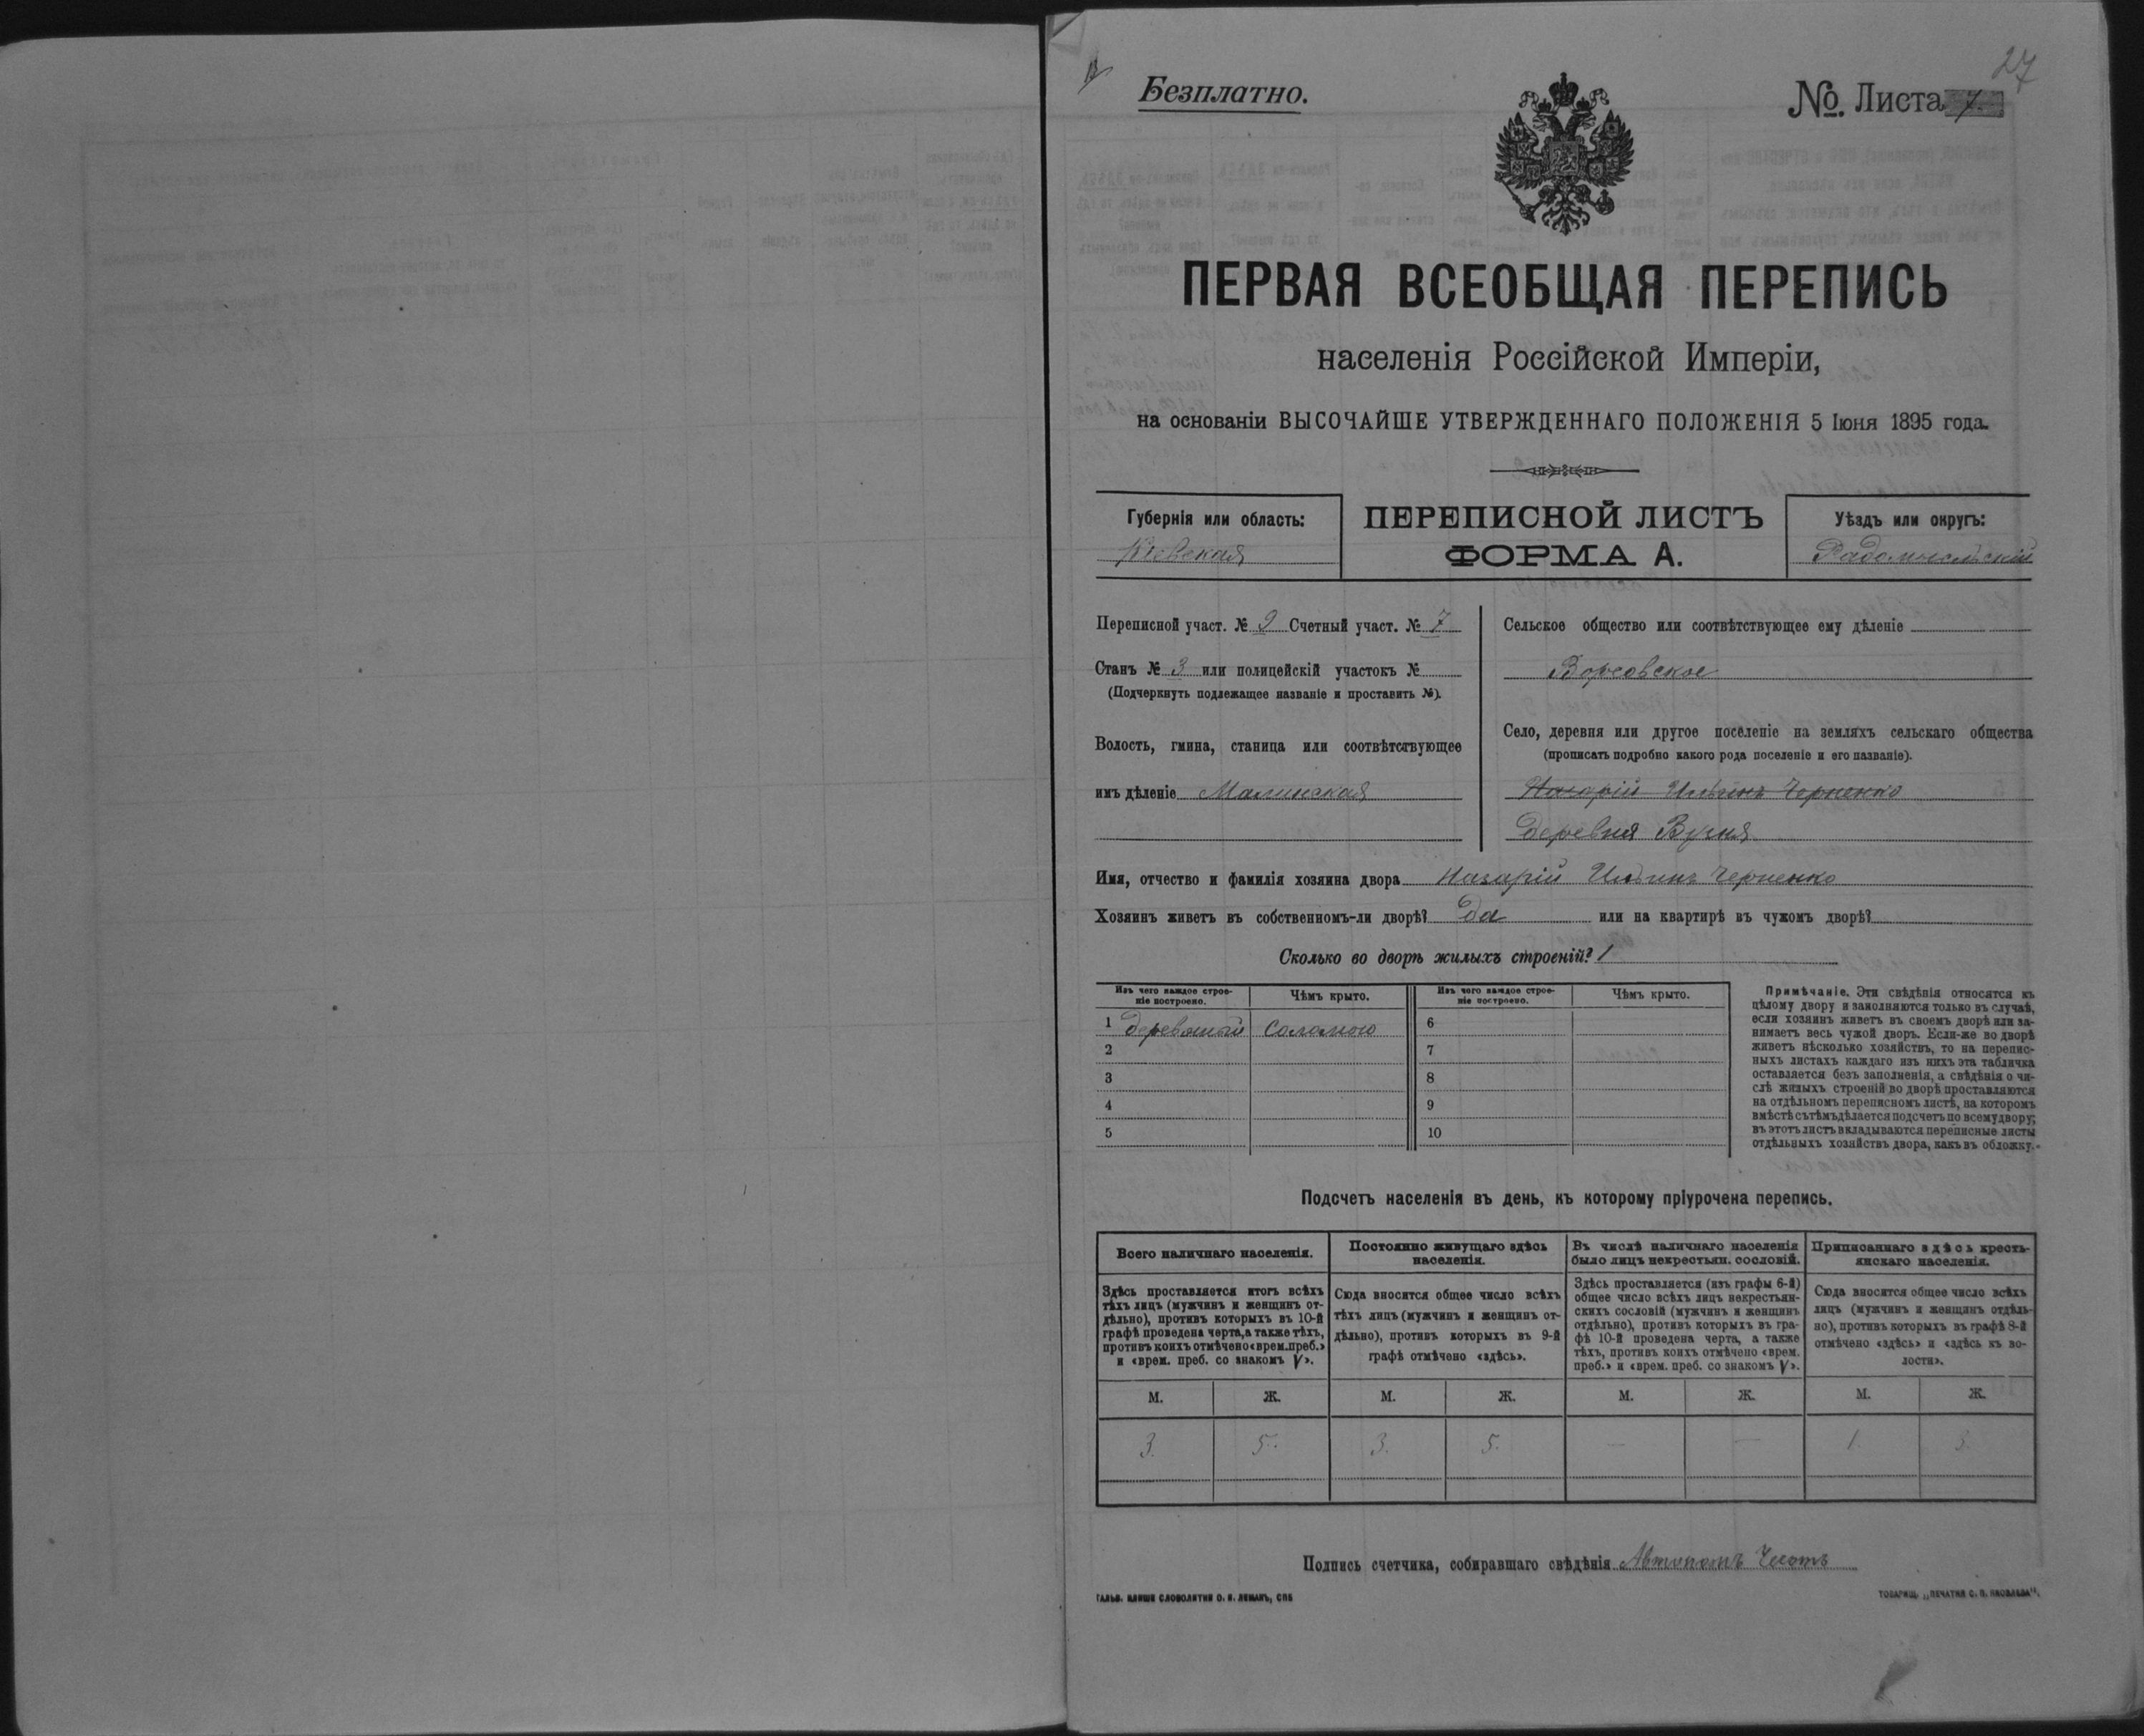 27
Безплатно.
№ Листа 7.
ПЕРВАЯ ВСЕОБЩАЯ ПЕРЕПИСЬ
населенія Россійской Имперіи,
на основаніи ВЫСОЧАЙШЕ УТВЕРЖДЕННАГО ПОЛОЖЕНІЯ 5 Іюня 1895 года.
Губернія или область:
Кіевская
ПЕРЕПИСНОЙ ЛИСТЪ
ФОРМА А.
Уѣздъ или округъ:
Радомысльскій
Переписной участ. № 9 Счетный участ. № 7
Станъ № 3 или полицейскій участокъ №
(Подчеркнуть подлежащее названіе и проставить №).
Волость, гмина, станица или соотвѣтствующее
имъ дѣленіе Малинская
Сельское общество или соотвѣтствующее ему дѣленіе
Ворсовское
Село, деревня или другое поселеніе на земляхъ сельскаго общества
(прописать подробно какого рода поселеніе и его названіе).
Назарій Ильинъ Черненко
деревня
Имя, отчество и фамилія хозяина двора Назарій Ильинъ Черненко
Хозяинъ живетъ въ собственномъ-ли дворѣ? Да или на квартирѣ въ чужомъ дворѣ?
Сколько во дворѣ жилыхъ строеній? 1
Изъ чего каждое строе-
ніе построено.
Чѣмъ крыто.
Изъ чего каждое строе-
ніе построено.
Чѣмъ крыто.
1 деревяный соломою 6
2 7
3 8
4 9
5 10
Примѣчаніе. Эти свѣдѣнія относятся къ
цѣлому двору и заполняются только въ случаѣ,
если хозяинъ живетъ въ своемъ дворѣ или за-
нимаетъ весь чужой дворъ. Если-же во дворѣ
живетъ нѣсколько хозяйствъ, то на перепис-
ныхъ листахъ каждаго изъ нихъ эта табличка
оставляется безъ заполненія, а свѣдѣнія о чи-
слѣ жилыхъ строеній во дворѣ проставляются
на отдѣльномъ переписномъ листѣ, на которомъ
вмѣстѣ съ тѣмъ дѣлается подсчетъ по всему двору;
въ этотъ листъ вкладываются переписные листы
отдѣльныхъ хозяйствъ двора, какъ въ обложку.
Подсчетъ населенія въ день, къ которому пріурочена перепись.
Всего наличнаго населенія.
Постоянно живущаго здѣсь
населенія.
Въ числѣ наличнаго населенія
было лицъ некрестьян. сословій.
Приписаннаго здѣсь кресть-
янскаго населенія.
Здѣсь проставляется итогъ всѣхъ
тѣхъ лицъ (мужчинъ и женщинъ от-
дѣльно), противъ которыхъ въ 10-й
графѣ проведена черта, а также тѣхъ,
противъ коихъ отмѣчено «врем. преб.»
и «врем. преб. со знакомъ V».
Сюда вносится общее число всѣхъ
тѣхъ лицъ (мужчинъ и женщинъ от-
дѣльно), противъ которыхъ въ 9-й
графѣ отмѣчено «здѣсь».
Здѣсь проставляется (изъ графы 6-й)
общее число всѣхъ лицъ некрестьян-
скихъ сословій (мужчинъ и женщинъ
отдѣльно), противъ которыхъ въ гра-
фѣ 10-й проведена черта, а также
тѣхъ, противъ коихъ отмѣчено «врем.
преб.» и «врем. преб. со знакомъ V».
Сюда вносится общее число всѣхъ
лицъ (мужчинъ и женщинъ отдѣль-
но), противъ которыхъ въ графѣ 8-й
отмѣчено «здѣсь» и «здѣсь къ во-
лости».
М. Ж. М. Ж. М. Ж. М. Ж.
3. 5. 3. 5. — — 1. 3.
Подпись счетчика, собиравшаго свѣдѣнія Автономъ
ГАЛЬВ. КЛИШЕ СЛОВОЛИТНИ О. И. ЛЕМАНЪ, СПБ
ТОВАРИЩ. „ПЕЧАТНЯ С. П. ЯКОВЛЕВА".